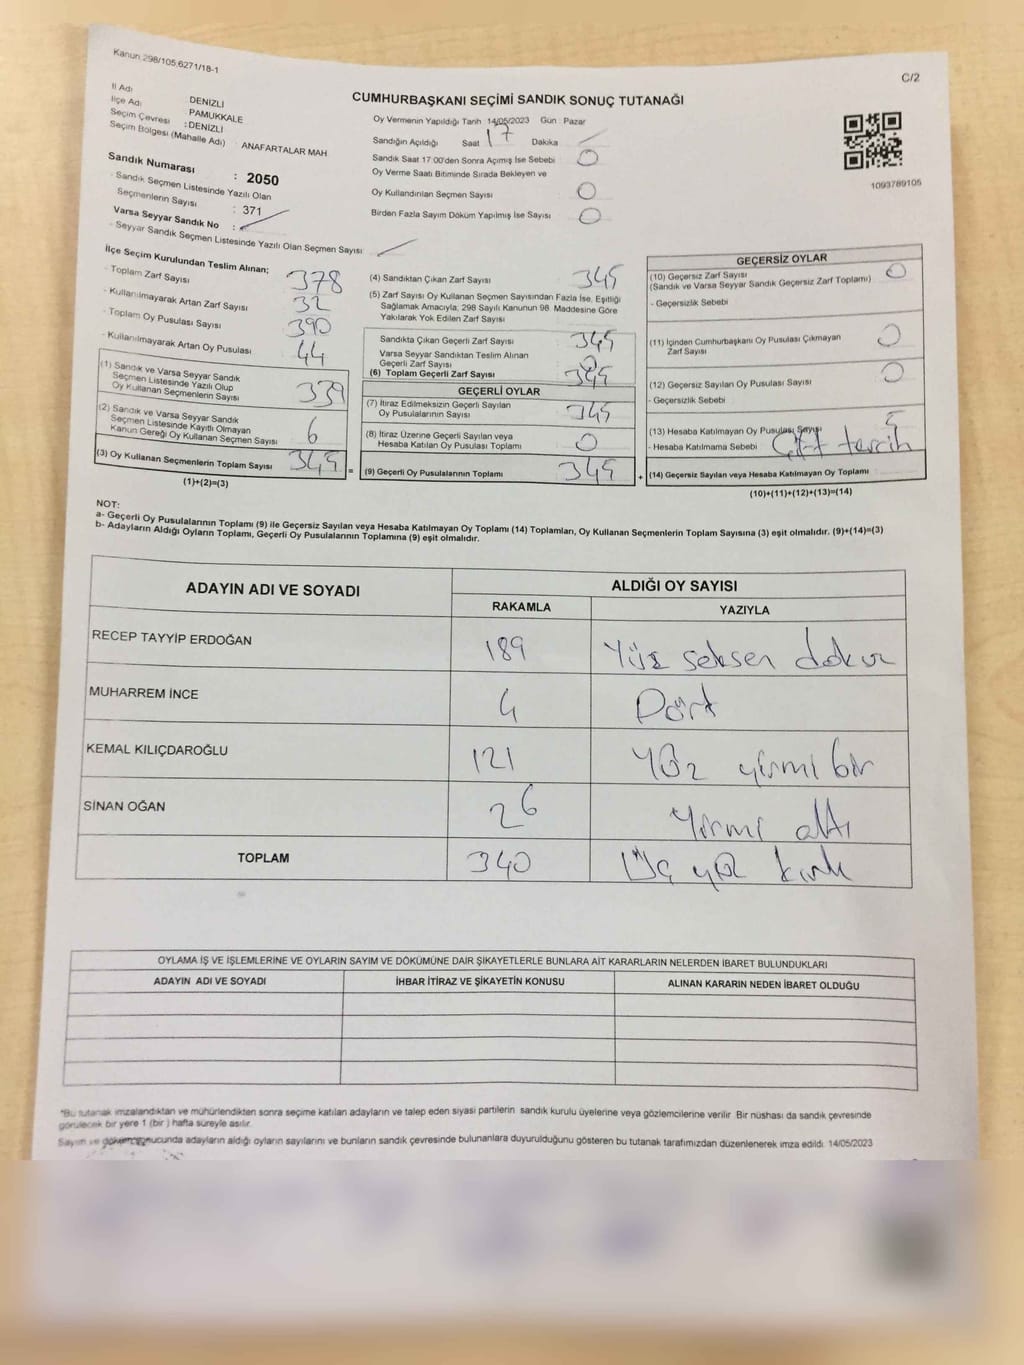 Kanun 298/105,6271/18-1
C/2
CUMHURBAŞKANI SEÇİMİ SANDIK SONUÇ TUTANAĞI
İl Adı : DENİZLİ
İlçe Adı : PAMUKKALE
Seçim Çevresi : DENİZLİ
Seçim Bölgesi (Mahalle Adı) : ANAFARTALAR MAH
Sandık Numarası : 2050
Sandık Seçmen Listesinde Yazılı Olan
Seçmenlerin Sayısı : 371
Varsa Seyyar Sandık No :
Seyyar Sandık Seçmen Listesinde Yazılı Olan Seçmen Sayısı
Oy Vermenin Yapıldığı Tarih 14/05/2023 Gün : Pazar
Sandığın Açıldığı Saat 17 Dakika
Sandık Saat 17:00'den Sonra Açımış İse Sebebi 0
Oy Verme Saati Bitiminde Sırada Bekleyen ve
Oy Kullandırılan Seçmen Sayısı 0
Birden Fazla Sayım Döküm Yapılmış İse Sayısı 0
1093789105
İlçe Seçim Kurulundan Teslim Alınan;
- Toplam Zarf Sayısı 378
- Kullanılmayarak Artan Zarf Sayısı 32
- Toplam Oy Pusulası Sayısı 390
- Kullanılmayarak Artan Oy Pusulası 44
(1) Sandık ve Varsa Seyyar Sandık
Seçmen Listesinde Yazılı Olup
Oy Kullanan Seçmenlerin Sayısı 339
(2) Sandık ve Varsa Seyyar Sandık
Seçmen Listesinde Kayıtlı Olmayan
Kanun Gereği Oy Kullanan Seçmen Sayısı 6
(3) Oy Kullanan Seçmenlerin Toplam Sayısı 345 =
(1)+(2)=(3)
(4) Sandıktan Çıkan Zarf Sayısı 345
(5) Zarf Sayısı Oy Kullanan Seçmen Sayısından Fazla İse, Eşitliği
Sağlamak Amacıyla, 298 Sayılı Kanunun 98. Maddesine Göre
Yakılarak Yok Edilen Zarf Sayısı
Sandıkta Çıkan Geçerli Zarf Sayısı 345
Varsa Seyyar Sandıktan Teslim Alınan
Geçerli Zarf Sayısı 0
(6) Toplam Geçerli Zarf Sayısı 345
GEÇERLİ OYLAR
(7) İtiraz Edilmeksizin Geçerli Sayılan
Oy Pusulalarının Sayısı 345
(8) İtiraz Üzerine Geçerli Sayılan veya
Hesaba Katılan Oy Pusulası Toplamı 0
(9) Geçerli Oy Pusulalarının Toplamı 345 +
GEÇERSİZ OYLAR
(10) Geçersiz Zarf Sayısı 0
(Sandık ve Varsa Seyyar Sandık Geçersiz Zarf Toplamı)
- Geçersizlik Sebebi
(11) İçinden Cumhurbaşkanı Oy Pusulası Çıkmayan
Zarf Sayısı 0
(12) Geçersiz Sayılan Oy Pusulası Sayısı 0
- Geçersizlik Sebebi
(13) Hesaba Katılmayan Oy Pusulası Sayısı 5
- Hesaba Katılmama Sebebi Çift tercih
(14) Geçersiz Sayılan veya Hesaba Katılmayan Oy Toplamı
(10)+(11)+(12)+(13)=(14)
NOT:
a- Geçerli Oy Pusulalarının Toplamı (9) ile Geçersiz Sayılan veya Hesaba Katılmayan Oy Toplamı (14) Toplamları, Oy Kullanan Seçmenlerin Toplam Sayısına (3) eşit olmalıdır. (9)+(14)=(3)
b- Adayların Aldığı Oyların Toplamı, Geçerli Oy Pusulalarının Toplamına (9) eşit olmalıdır.
ADAYIN ADI VE SOYADI ALDIĞI OY SAYISI
RAKAMLA YAZIYLA
RECEP TAYYİP ERDOĞAN 189 Yüz seksen dokuz
MUHARREM İNCE 4 Dört
KEMAL KILIÇDAROĞLU 121 Yüz yirmi bir
SİNAN OĞAN 26 Yirmi altı
TOPLAM 340 Üç yüz kırk
OYLAMA İŞ VE İŞLEMLERİNE VE OYLARIN SAYIM VE DÖKÜMÜNE DAİR ŞİKAYETLERLE BUNLARA AİT KARARLARIN NELERDEN İBARET BULUNDUKLARI
ADAYIN ADI VE SOYADI İHBAR İTİRAZ VE ŞİKAYETİN KONUSU ALINAN KARARIN NEDEN İBARET OLDUĞU
*Bu tutanak imzalandıktan ve mühürlendikten sonra seçime katılan adayların ve talep eden siyasi partilerin sandık kurulu üyelerine veya gözlemcilerine verilir. Bir nüshası da sandık çevresinde
görülecek bir yere 1 (bir ) hafta süreyle asılır.
Sayım ve dökümü sonucunda adayların aldığı oyların sayılarını ve bunların sandık çevresinde bulunanlara duyurulduğunu gösteren bu tutanak tarafımızdan düzenlenerek imza edildi. 14/05/2023